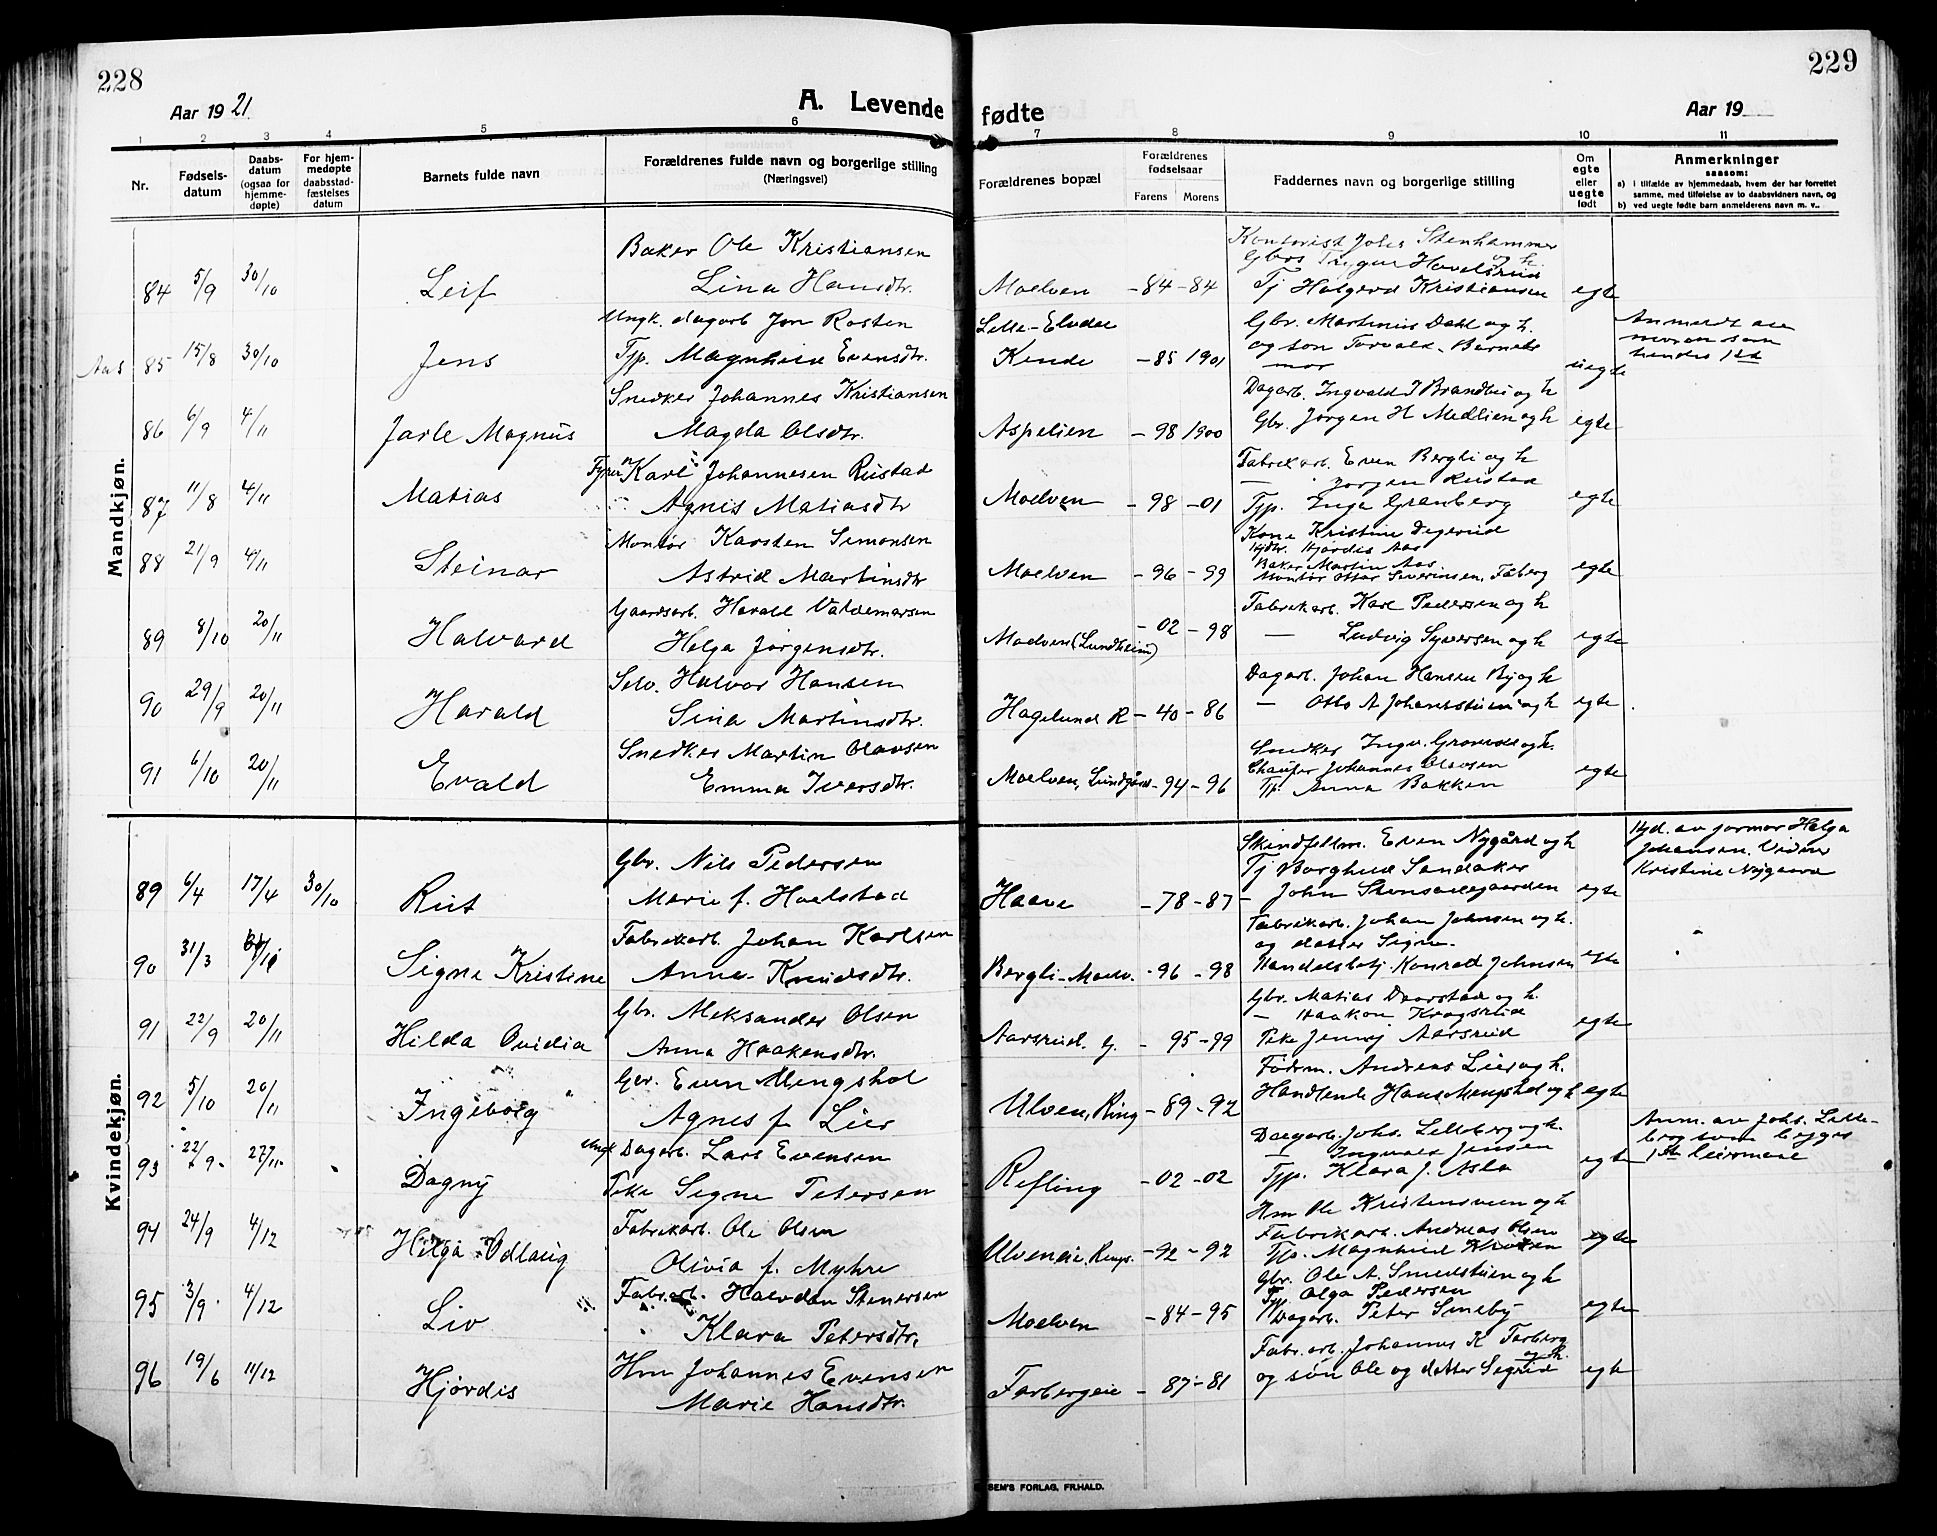 228
229
Aar 1921
A. Levende fødte
Aar 19
1 2 3 4 5 6 7 8 9 10 11
Nr.
Fødsels-
datum
Daabs-
datum
(ogsaa for
hjemme-
døpte)
For hjem-
medøpte
daabsstad-
fæstelses
datum
Barnets fulde navn
Forældrenes fulde navn og borgerlige stilling
(Næringsvei)
Forældrenes bopæl
Forældrenes
fødselsaar
Farens Morens
Faddernes navn og borgerlige stilling
Om
egte
eller
uegte
født
Anmerkninger
saasom:
a) i tilfælde av hjemmedaab, hvem der har forrettet
samme, med tilføielse av to daabsvidners navn, og
b) ved uegte fødte barn anmelderens navn m. v..
Mandkjøn.
Baker Ole Kristiansen
Kontorist Johs Stenhammer
og h.
Gbrs Trygve Hovelsrud
84 5/9 30/10 Leif Lina Hansdtr. Moelven -84 -84 Tj Holgerd Kristiansen egte
Ungk. dagarb Jon Rosten Lille-Elvdal Gbr. Martinus Dahl og h. Anmeldt av
Aas 85 15/8 30/10 Jens Typ. Magnhild Evensdtr. Kende -85 1901 og søn Torvald. Barnets mor uegte moren som
hendes 1ste
Snedker Johannes Kristiansen Dagarb. Ingvald J Brandlui og h
86 6/9 4/11 Jarle Magnus Magda Olsdtr. Aspelien -98 1900 Gbr. Jørgen H Medlien og h egte
Fyrb. Karl Johannesen Rustad Fabrikarb. Even Bergli og h
— Jørgen Rustad
87 11/8 4/11 Matias Agnis Matiasdtr Moelven -98 -01 Typ. Inga Granberg egte
Montør Karsten Simonsen Kone Kristine Degerud
Hjdtr. Hjørdis Aas
Baker Martin Aas.
88 21/9 4/11 Steinar Astrid Martinsdtr Moelven -96 -99 Montør Ottar Severinsen, Faberg egte
Gaardsarb. Harald Valdemarsen Fabrikarb. Karl Pedersen og h
89 8/10 20/11 Halvard Helga Jørgensdtr. Moelven (Lundheim) -02 -98 — Ludvig Syversen og h egte
Selv. Halvor Hansen Dagarb. Johan Hansen By og h
90 29/9 20/11 Harald Sina Martinsdtr. Hagelund R -40 -86 — Otto A Johanstuen og h egte
Snedker Martin Olavsen Snedker Ingv. og h.
Chaufør Johannes Olavsen
91 6/10 20/11 Evald Emma Iversdtr. Moelven, Lundgård -94 -96 Tp. Anna Bakken egte
Kvindekjøn.
Gbr. Nils Pedersen Skindfellm. Even Nygård og h Hjd. av farmor Helga
Tj Borghild Sandaker Johansen. Vidner
89 6/4 17/4 30/10 Rut Marie f. Hoelstad Haave -78 -87 — John egte Kristine Nygaard
Fabrikarb. Johan Karlsen Fabrikarb. Johan Johnsen og h.
og datter Signe.
90 31/3 Signe Kristine Anna Knudsdtr. Bergli-Moelv. -96 -98 Handelsbetj. Konrad Johnsen egte
Gbr. Aleksander Olsen Gbr. Matias Daarstad og h.
— Haakon Krogsrud
91 22/9 20/11 Hilda Ovidia Anna Haakensdtr. Aarsrud. g. -95 -99 Pike Jenny Aarsrud egte
Gbr. Even Mengshol Fodrm. Andreas Lier og h.
92 5/10 20/11 Ingeborg Agnes f Lier Ulven, Ring -89 -92 Handlende Hans Mengshol og h egte
Ungk Dagarb. Lars Evensen Dagarb. Johs. Lilleberg og h. Anm. av Johs. Lille-
— Ingvald Jensen berg som begges
93 22/9 27/11 Dagny Pike Signe Petersen Refling -02 -02 Typ. Klara J. Asla egte 1ste leiermaal
Fabrikarb. Ole Olsen Hm Ole Kristensveen og h
Fabrikarb. Andreas Olsen
94 24/9 4/12 Helga Odlaug Olivia f. Myhre Ulveneie, Rings. -92 -92 Typ. Magnhild Kroken egte
Fabr.arb. Halvdan Stenersen Gbr. Ole A. Smedstuen og h
Tj Olga Pedersen
95 3/9 4/12 Liv Klara Petersdtr. Moelven -84 -95 Dagarb. Peter Smeby egte
Hm Johannes Evensen Fabr.arb. Johannes K Farberg
og h.
96 19/6 11/12 Hjørdis Marie Hansdtr. Farbergeie -87 -81 og søn Ole og datter Sigrid egte
SEM'S FORLAG, FR.HALD.